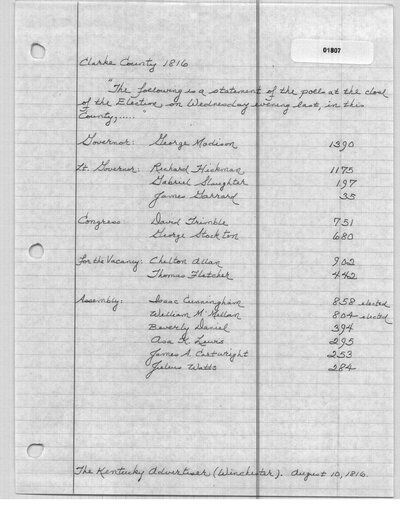 01807
Clarke County 1816
"The following is a statement of the polls at the close
of the Election, on Wednesday evening last, in this
County,....."
Governor: George Madison 1390
Lt. Governor: Richard Hickman 1175
Gabriel Slaughter 197
James Garrard 35
Congress: David Trimble 751
George Stockton 680
for the Vacancy: Chelton Allan 902
Thomas Fletcher 442
Assembly: Isaac Cunningham 858 elected
William McMillan 804 elected
Beverly Daniel 394
Asa K. Lewis 295
James A. Cartwright 253
Julius Watts 284
The Kentucky Advertiser (Winchester). August 10, 1816.